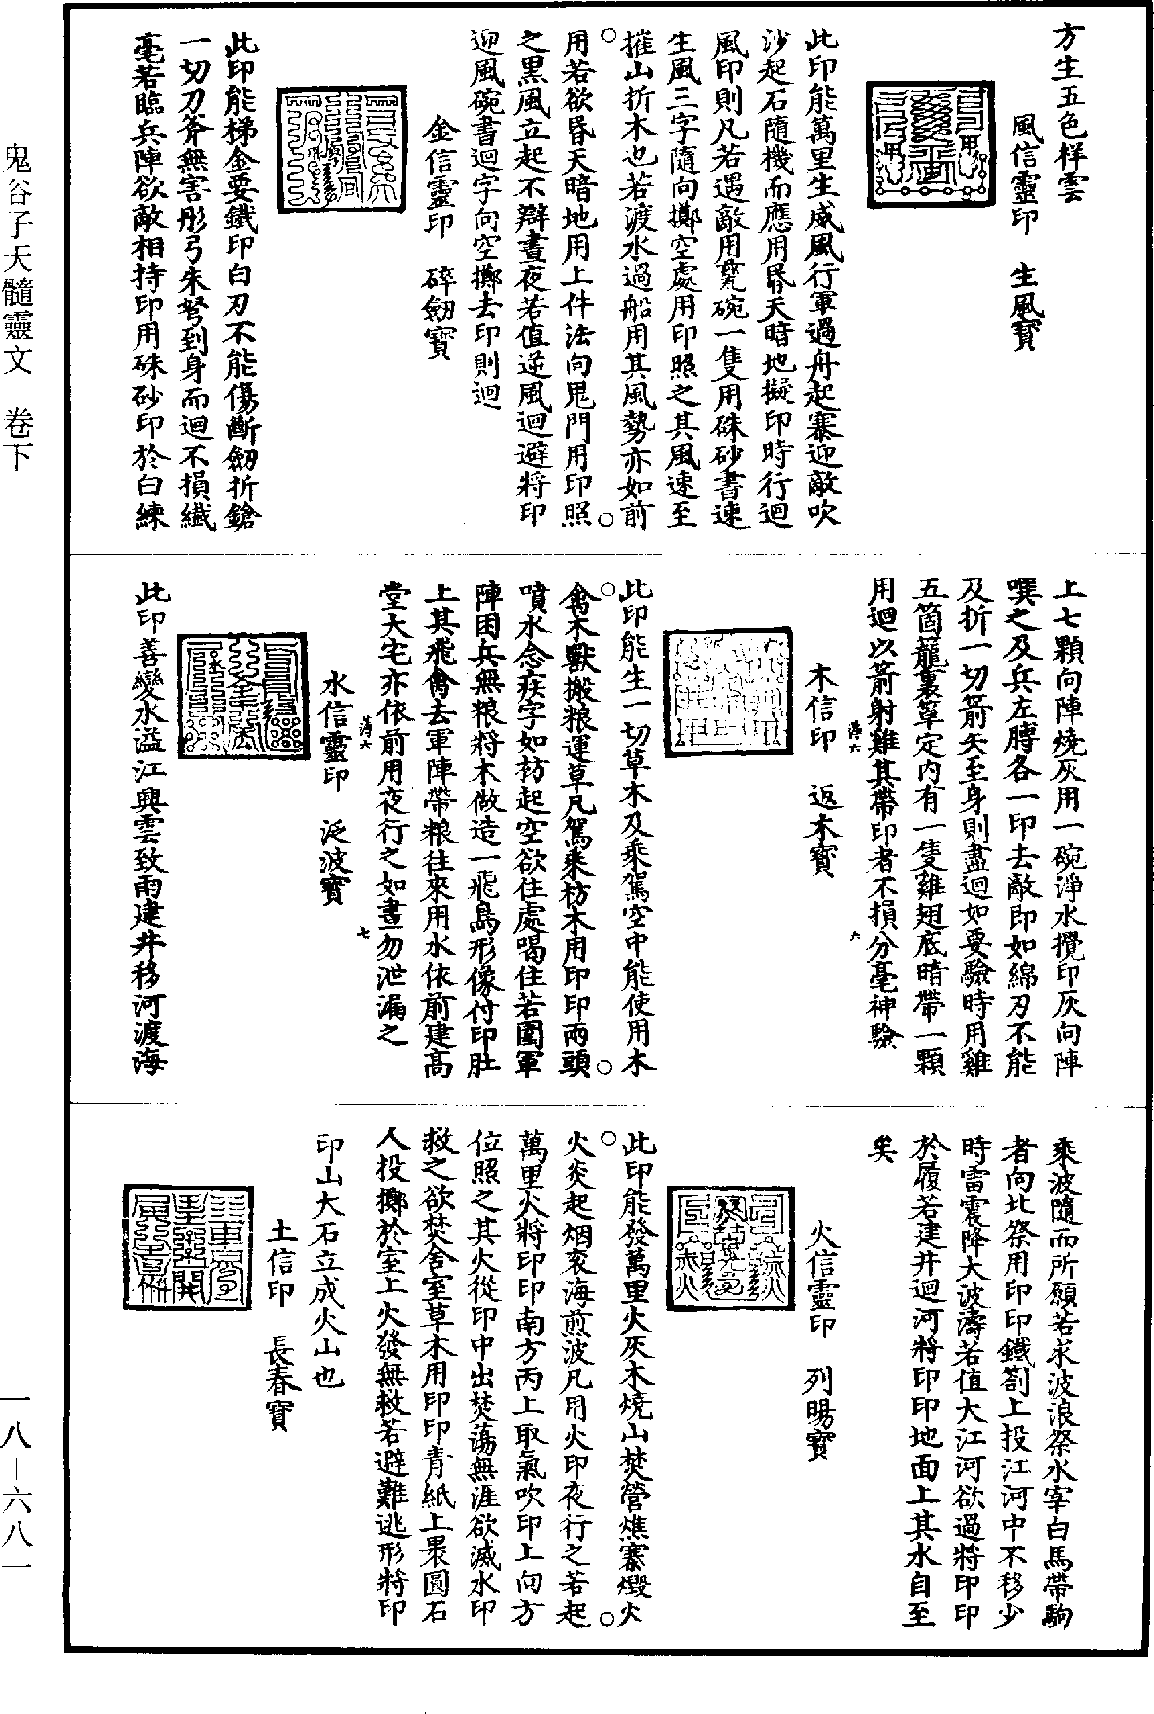 方生五色样雲
風信靈印　生風寳
此印能萬里生威風行軍過舟起寨迎敵吹
沙起石隨機而應用昏天暗地擬印時行迴
風印則凡若遇敵用甆碗一隻用硃砂書速
生風三字隨向擲空處用印照之其風速至
摧山折木也若渡水過船用其風勢亦如前
用若欲昏天暗地用上件法向鬼門用印照
之黒風立起不辯晝夜若值逆風迴避將印
迎風碗書迴字向空擲去印則迴
金信靈印　碎劒寳
此印能梯金要鐵印白刃不能傷斷劒折鎗
一切刀斧無害彤弓朱弩到身而迴不損纎
毫若臨兵陣欲敵相持印用硃砂印於白練
上七顆向陣燒灰用一碗淨水攪印灰向陣
噀之及兵左膊各一印去敵即如綿刃不能
及折一切箭矢至身則盡迴如要驗時用雞
五箇籠裏窂定内有一隻雞翅底暗帶一顆
用迴以箭射雞其帶印者不損分毫神驗
木信印　返木寳
此印能生一切草木及乘駕空中能使用木
禽木獸搬粮運草凡駕乘枋木用印印兩頭
噴水念疾字如枋起空欲住處喝住若圍軍
陣困兵無粮將木做造一飛鳥形像付印肚
上其飛禽去軍陣帶粮往來用水依前建高
堂大宅亦依前用夜行之如晝勿泄漏之
水信靈印　泛波寳
此印善變水溢江興雲致雨建井移河渡海
乘波隨而所願若求波浪祭水宰白馬帶駒
者向北祭用印印鐵劄上投江河中不移少
時雷震降大波濤若值大江河欲過將印印
於履若建井迴河將印印地面上其水自至
矣
火信靈印　列暘寳
此印能發萬里火灰木燒山焚營燋寨燬火
火炎起烟衮海煎波凡用火印夜行之若起
萬里火將印印南方丙上取氣吹印上向方
位照之其火從印中出焚蕩無涯欲滅水印
救之欲焚舍室草木用印印青紙上褁圓石
人投擲於室上火發無救若避難逃形將印
印山大石立成火山也
土信印　長春寳
鬼谷子天髓靈文　卷下
一八—六八一